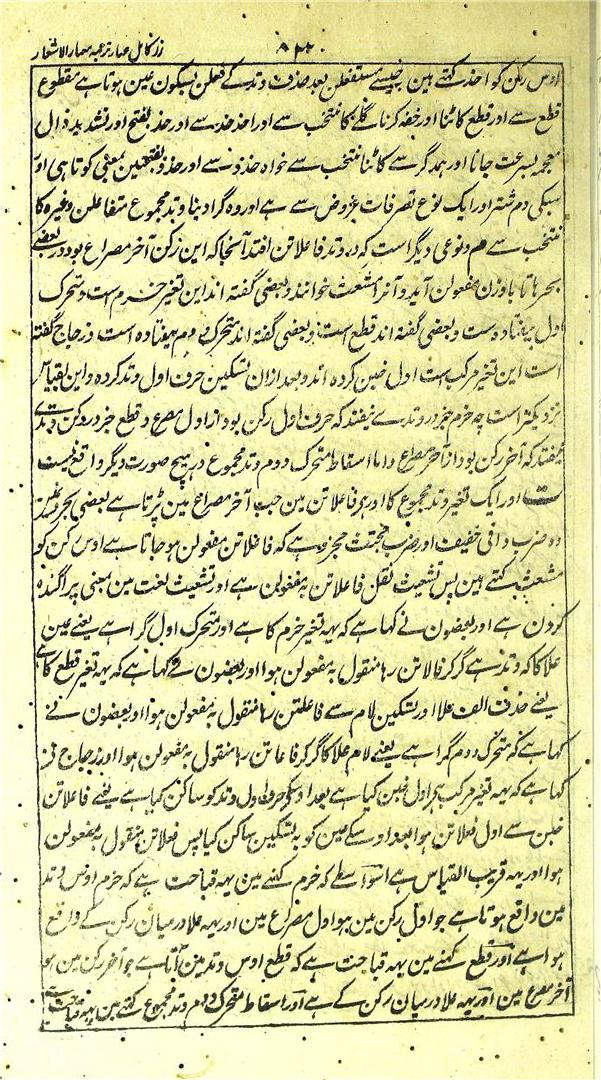 زر کامل عیار ترجمہ معیار الاشعار
اوس رکن کو احذ کہتے ہین جیسے مستفعلن بعد حذف وتد کے فعلن بسکون عین ہوتا ہے مقطوع
قطع سے اور قطع کاٹنا اور خفہ کرنا گلے کا منتخب سے اور احذ حذ سے اور حذ بفتح اور تشدید ذال
معجمہ بسرعت جانا اور ہمدگر سے کاٹنا منتخب سے خواہ حذذ سے اور حذذ بفتحتین بمعنی کوتاہی او
سبکی دم شتر اور ایک نوع تصرفات عروض سے ہے اور وہ گرا دینا وتد مجموع متفاعلن وغیرہ کا
منتخب سے هم ونوعی دیگر است که در وتد فاعلاتن افتد آنجا که این رکن آخر مصراع بود در بعضے
بحرها تا با وزن مفعولن آید و آنرا مشعث خوانند و بعضی گفته اند این تغیر خرم است و متحرک
اول بیفتاده است و بعضی گفته اند قطع است و بعضی گفته اند متحرک دوم بیفتاده است و زجاج گفته
است این تغیر مرکب است اول خبن کرده اند و بعد ازان تسکین حرف اول وتد کرده و این بقیاس
نزدیکتر است چه خرم جز در وتدے نیفتد که حرف اول رکن بود از اول مصرع و قطع جز در رکن وتدے
نیفتد که آخر رکن بود از آخر مصراع و اما اسقاط متحرک دوم وتد مجموع در هیچ صورت دیگر واقع نیست
ت اور ایک تغیر وتد مجموع کا اور ہے فاعلاتن مین جب آخر مصراع مین پڑتا ہے بعضی بحر
وہ ضرب وافی خفیف اور ضرب مجتث مجزو ہے کہ فاعلاتن مفعولن ہو جاتا ہے اوس رکن کو
مشعث کہتے ہین پس تشعیث نقل فاعلاتن بمفعولن ہے اور تشعیث لغت مین بمعنی پراگندہ
کردن ہے اور بعضون نے کہا ہے کہ یہہ تغیر خرم کا ہے اور متحرک اول گرا ہے یعنے عین
علا کا کہ وتد ہے گر کر فالاتن رہا منقول بہ مفعولن ہوا اور بعضون نے کہا ہے کہ یہہ تغیر قطع کا ہے
یعنے حذف الف علا اور تسکین لام سے فاعلتن رہا منقول بہ مفعولن ہوا اور بعضون نے
کہا ہے کہ متحرک دوم گرا ہے یعنے لام علا کا گر کر فاعاتن رہا منقول بمفعولن ہوا اور زجاج نے
کہا ہے کہ یہہ تغیر مرکب ہے اول خبن کیا ہے بعد اوسکے حرف اول وتد کو ساکن کیا ہے یعنے فاعلاتن
خبن سے اول فعلاتن ہوا بعد اوسکے عین کو بہ تسکین ساکن کیا پس فعلاتن منقول بہ مفعولن
ہوا اور یہہ قریب القیاس ہے اسواسطے کہ خرم کہنے مین یہہ قباحت ہے کہ خرم اوس وتد
مین واقع ہوتا ہے جو اول رکن مین ہو اول مصراع مین اور یہہ علا درمیان رکن کے واقع
ہوا ہے اور قطع کہنے مین یہہ قباحت ہے کہ قطع اوس وتد مین آتا ہے جو آخر رکن مین ہو
آخر مصرع مین اور یہہ علا درمیان رکن کے ہے اور اسقاط متحرک دوم وتد مجموع کہنے مین یہہ قباحت